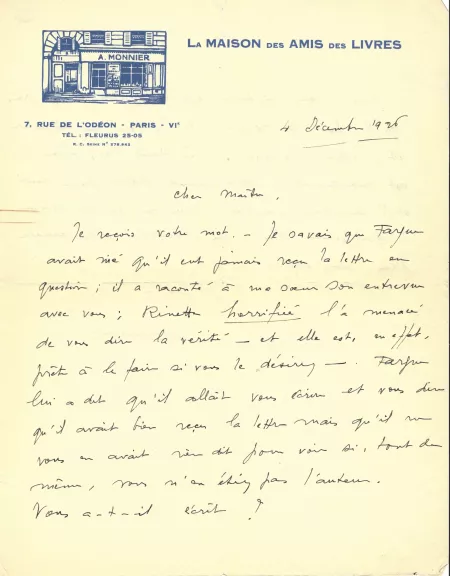 A. MONNIER
LA MAISON DES AMIS DES LIVRES
7, RUE DE L'ODÉON - PARIS - VIe
TÉL. : FLEURUS 25-05
R. C. Seine No 278.943
4 Décembre 1926
Cher Maître,
Je reçois votre mot. - Je savais que Fargue
avait nié qu'il eut jamais reçu la lettre en
question ; il a raconté à ma sœur son entrevue
avec vous ; Rinette horrifiée l'a menacé
de vous dire la vérité - et elle est, en effet,
prête à le faire si vous le désirez -. Fargue
lui a dit qu'il allait vous écrire et vous dire
qu'il avait bien reçu la lettre mais qu'il ne
vous en avait rien dit pour voir si, tout de
même, vous n'en étiez pas l'auteur.
Vous a-t-il écrit ?